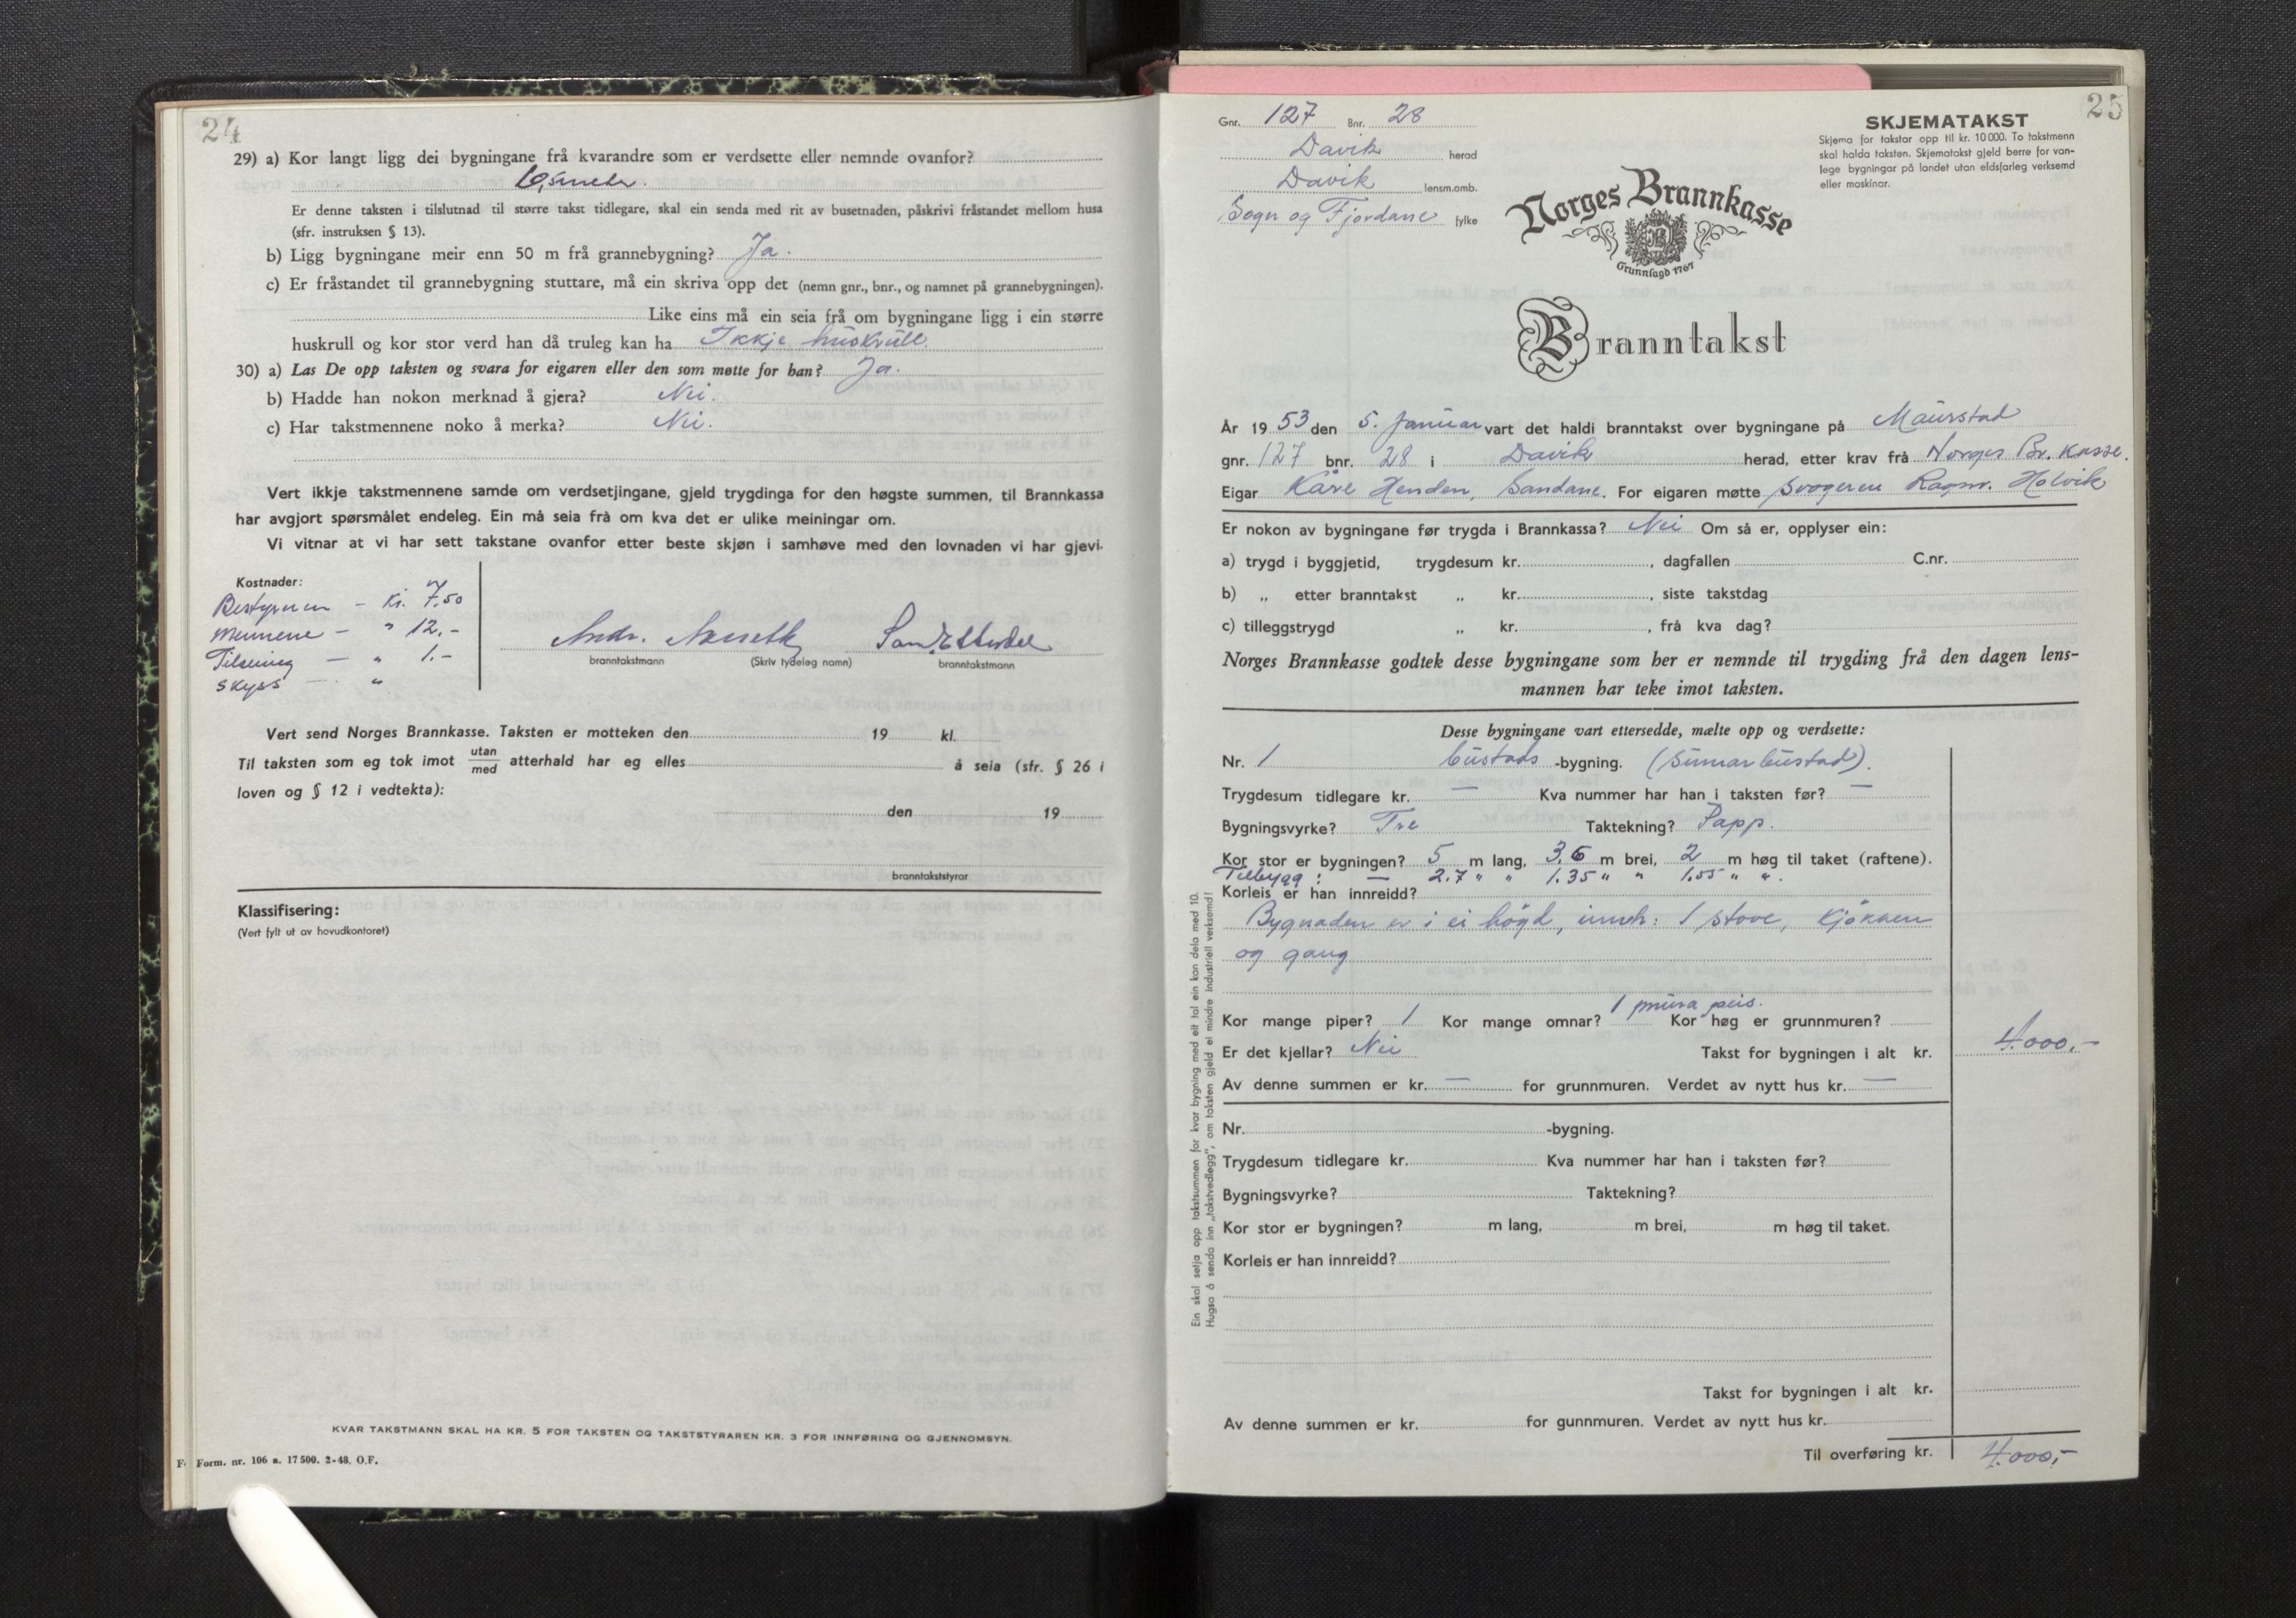 24
29) a) Kor langt ligg dei bygningane frå kvarandre som er verdsette eller nemnde ovanfor?
Er denne taksten i tilslutnad til større takst tidlegare, skal ein senda med rit av busetnaden, påskrivi fråstandet mellom husa
(sfr. instruksen § 13).
b) Ligg bygningane meir enn 50 m frå grannebygning? Ja.
c) Er fråstandet til grannebygning stuttare, må ein skriva opp det (nemn gnr., bnr., og namnet på grannebygningen).
Like eins må ein seia frå om bygningane ligg i ein større
huskrull og kor stor verd han då truleg kan ha Ikkje huskrull.
30) a) Las De opp taksten og svara for eigaren eller den som møtte for han? Ja.
b) Hadde han nokon merknad å gjera? Nei.
c) Har takstmennene noko å merka? Nei.
Vert ikkje takstmennene samde om verdsetjingane, gjeld trygdinga for den høgste summen, til Brannkassa
har avgjort spørsmålet endeleg. Ein må seia frå om kva det er ulike meiningar om.
Vi vitnar at vi har sett takstane ovanfor etter beste skjøn i samhøve med den lovnaden vi har gjevi.
Kostnader:
Bestyreren – kr. 7.50
Mennene – " 12.–
– " 1.–
Skyss – "
Andr.
branntakstmann (Skriv tydeleg namn) branntakstmann
Vert send Norges Brannkasse. Taksten er motteken den 19 kl.
Til taksten som eg tok imot utan/med atterhald har eg elles å seia (sfr. § 26 i
loven og § 12 i vedtekta):
den 19
branntakststyrar
Klassifisering:
(Vert fylt ut av hovudkontoret)
KVAR TAKSTMANN SKAL HA KR. 5 FOR TAKSTEN OG TAKSTSTYRAREN KR. 3 FOR INNFØRING OG GJENNOMSYN.
F. Form. nr. 106 a. 17500. 2-48. O.F.
25
Gnr. 127 Bnr. 28
Davik herad
Davik lensm.omb.
Sogn og Fjordane fylke
SKJEMATAKST
Skjema for takstar opp til kr. 10 000. To takstmenn
skal halda taksten. Skjematakst gjeld berre for van-
lege bygningar på landet utan eldsfarleg verksemd
eller maskinar.
Norges Brannkasse
Grunnlagd 1767
Branntakst
År 1953 den 5. Januar vart det haldi branntakst over bygningane på Maurstad
gnr. 127 bnr. 28 i Davik herad, etter krav frå Norges Br. kasse.
Eigar Kåre Henden, Sandane. For eigaren møtte svogeren Ragnv. Holvik
Er nokon av bygningane før trygda i Brannkassa? Nei Om så er, opplyser ein:
a) trygd i byggjetid, trygdesum kr. , dagfallen C.nr.
b) „ etter branntakst „ kr. , siste takstdag
c) tilleggstrygd „ kr. , frå kva dag?
Norges Brannkasse godtek desse bygningane som her er nemnde til trygding frå den dagen lens-
mannen har teke imot taksten.
Desse bygningane vart ettersedde, mælte opp og verdsette:
Nr. 1 bustads -bygning. (Sumarbustad).
Trygdesum tidlegare kr. — Kva nummer har han i taksten før? —
Bygningsvyrke? Tre Taktekning? Papp.
Kor stor er bygningen? 5 m lang, 3,6 m brei, 2 m høg til taket (raftene).
Tilbygg: — 2.7 " " 1.35 " " 1.55 " ".
Korleis er han innreidd?
Bygnaden er i ei høgd, inneh: 1 stove, kjøkken
og gang
Kor mange piper? 1 Kor mange omnar? 1 mura peis. Kor høg er grunnmuren?
Er det kjellar? Nei Takst for bygningen i alt kr. 4.000,–
Av denne summen er kr. — for grunnmuren. Verdet av nytt hus kr. —
Nr. -bygning.
Trygdesum tidlegare kr. Kva nummer har han i taksten før?
Bygningsvyrke? Taktekning?
Kor stor er bygningen? m lang, m brei, m høg til taket.
Korleis er han innreidd?
Takst for bygningen i alt kr.
Av denne summen er kr. for gunnmuren. Verdet av nytt hus kr.
Til overføring kr. 4.000,–
Ein skal setja opp takstsummen for kvar bygning med eit tal ein kan dela med 10.
Hugsa å senda inn „takstvedlegg", om taksten gjeld ei mindre industriell verksemd!